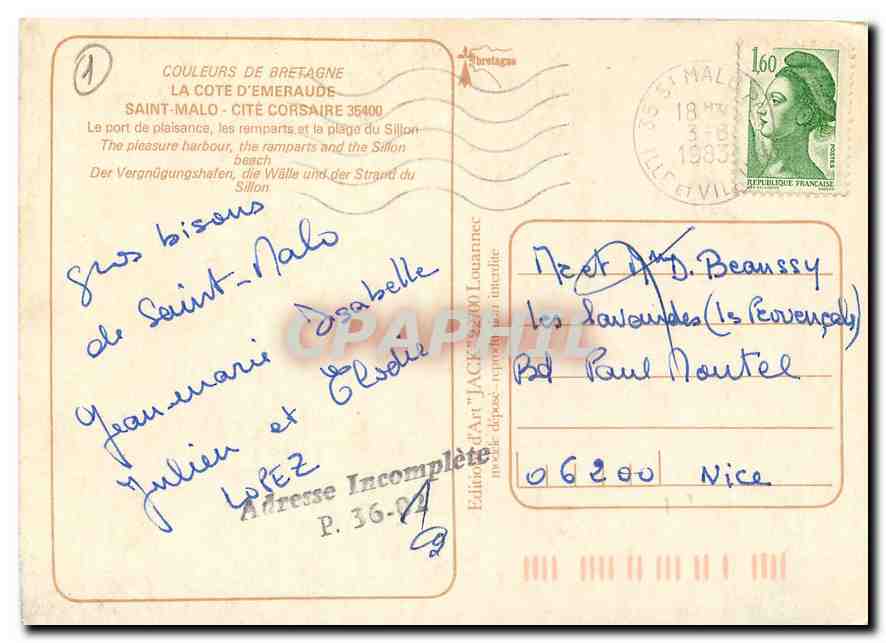 1
COULEURS DE BRETAGNE
LA COTE D'EMERAUDE
SAINT-MALO - CITÉ CORSAIRE 35400
Le port de plaisance, les remparts et la plage du Sillon
The pleasure harbour, the ramparts and the Sillon
beach
Der Vergnügungshafen, die Wälle und der Strand du
Sillon
bretagne
35 ST MALO
18 H
3-8
1983
ILLE ET VIL
1,60
POSTES
REPUBLIQUE FRANÇAISE
gros bisous
de Saint-Malo
Jean-marie Isabelle
Julien et Elodie
LOPEZ
Adresse Incomplète
P. 36-02
Editions d'Art "JACK" 22700 Louannec
modèle déposé - reproduction interdite
Mr et Mme D. Beaussy
les Savoindes (ls Provençals)
Bd Paul Montel
06200 Nice
CPAPHIL